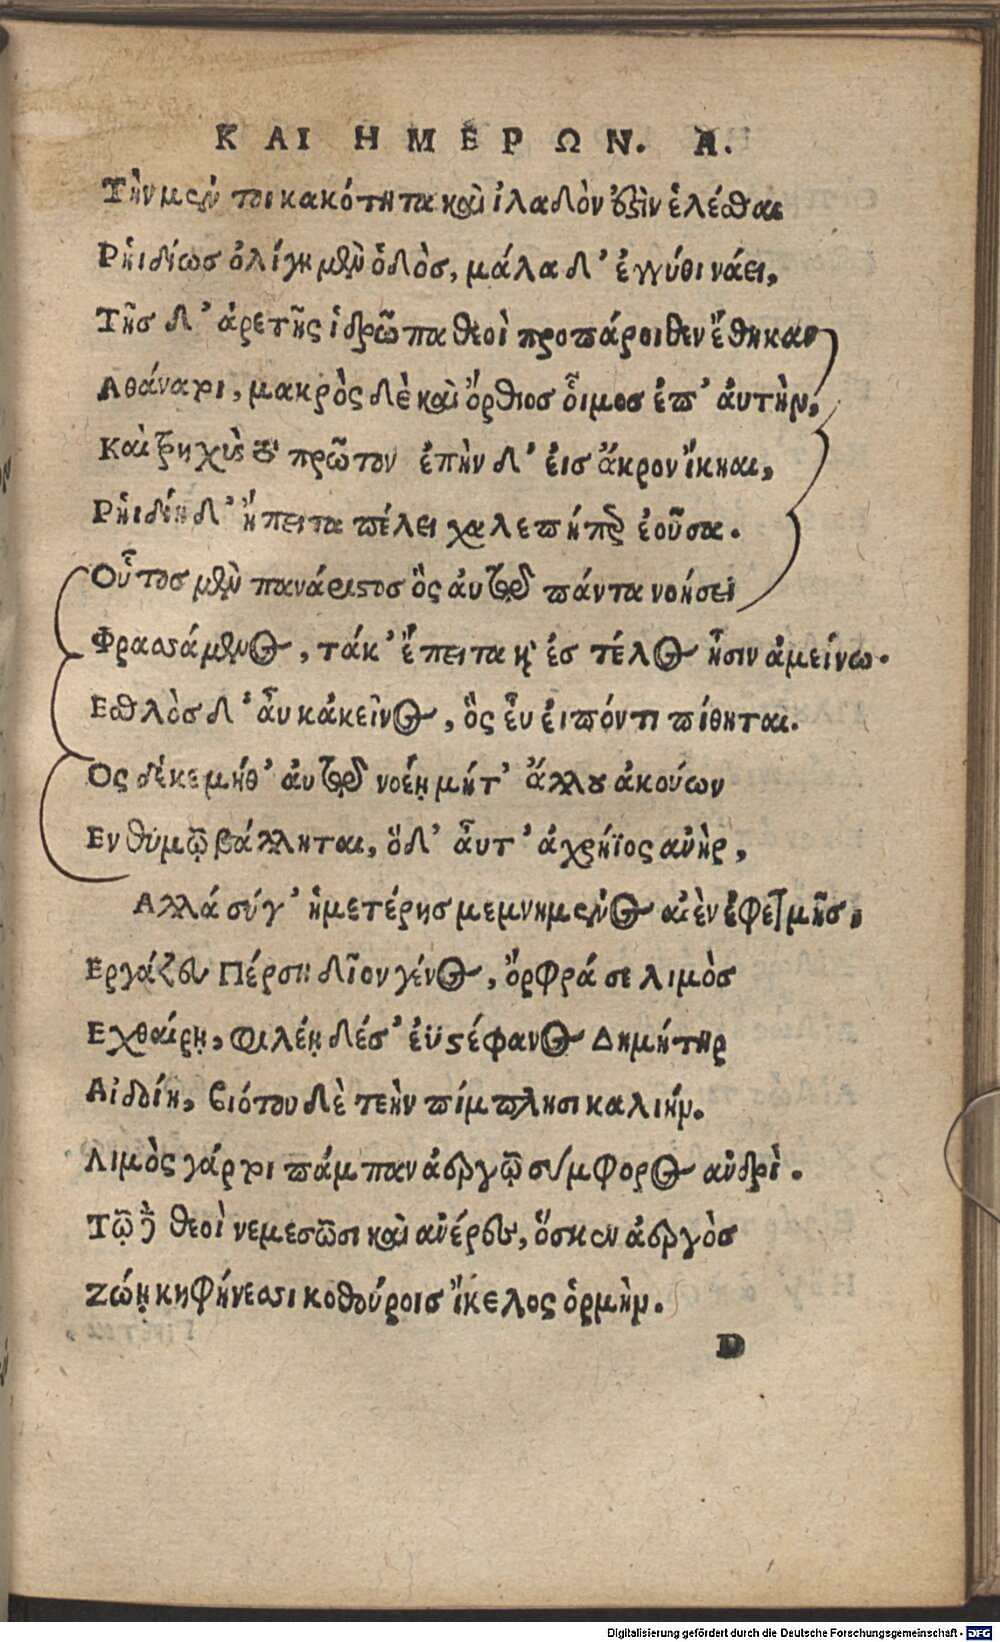 ΚΑΙ ΗΜΕΡΩΝ. Α.
Τὴν μέν τοι κακότητα καὶ ἰλαδὸν ὅστιν ἑλέσθαι
Ρηϊδίως ὀλίγη μὲν ὁδὸς, μάλα δ' ἐγγύθι νάει,
Τῆς δ' ἀρετῆς ἱδρῶτα θεοὶ προπάροιθεν ἔθηκαν
Αθάνατοι, μακρὸς δὲ καὶ ὄρθιος οἶμος ἐπ' αὐτὴν,
Καὶ τρηχὺς τὸ πρῶτον ἐπὴν δ' εἰς ἄκρον ἵκηαι,
Ρηϊδίη δ' ἤπειτα πέλει χαλεπήπερ ἐοῦσα.
Οὗτος μὲν πανάριστος ὃς αὐτῷ πάντα νοήσει
Φρασσάμενος, τάκ' ἔπειτα καὶ ἐς τέλος ᾖσιν ἀμείνω.
Εσθλὸς δ' αὖ κἀκεῖνος, ὃς εὖ εἰπόντι πίθηται.
Ος δέ κε μήθ' αὐτῷ νοέῃ μήτ' ἄλλου ἀκούων
Εν θυμῷ βάλληται, ὅδ' αὖτ' ἀχρήϊος ἀνὴρ,
Αλλὰ σύγ' ἡμετέρης μεμνημένος αἰὲν ἐφετμῆς,
Εργάζευ Πέρση δῖον γένος, ὄφρά σε λιμὸς
Εχθαίρῃ, φιλέῃ δέ σ' ἐϋστέφανος Δημήτηρ
Αἰδοίη, βιότου δὲ τεὴν πίμπλησι καλιήν.
Λιμὸς γάρ τοι πάμπαν ἀεργῷ σύμφορος ἀνδρί.
Τῷ δὲ θεοὶ νεμεσῶσι καὶ ἀνέρες, ὅς κεν ἀεργὸς
Ζώῃ κηφήνεσσι κοθούροις ἴκελος ὁρμήν.
D
Digitalisierung gefördert durch die Deutsche Forschungsgemeinschaft - DFG